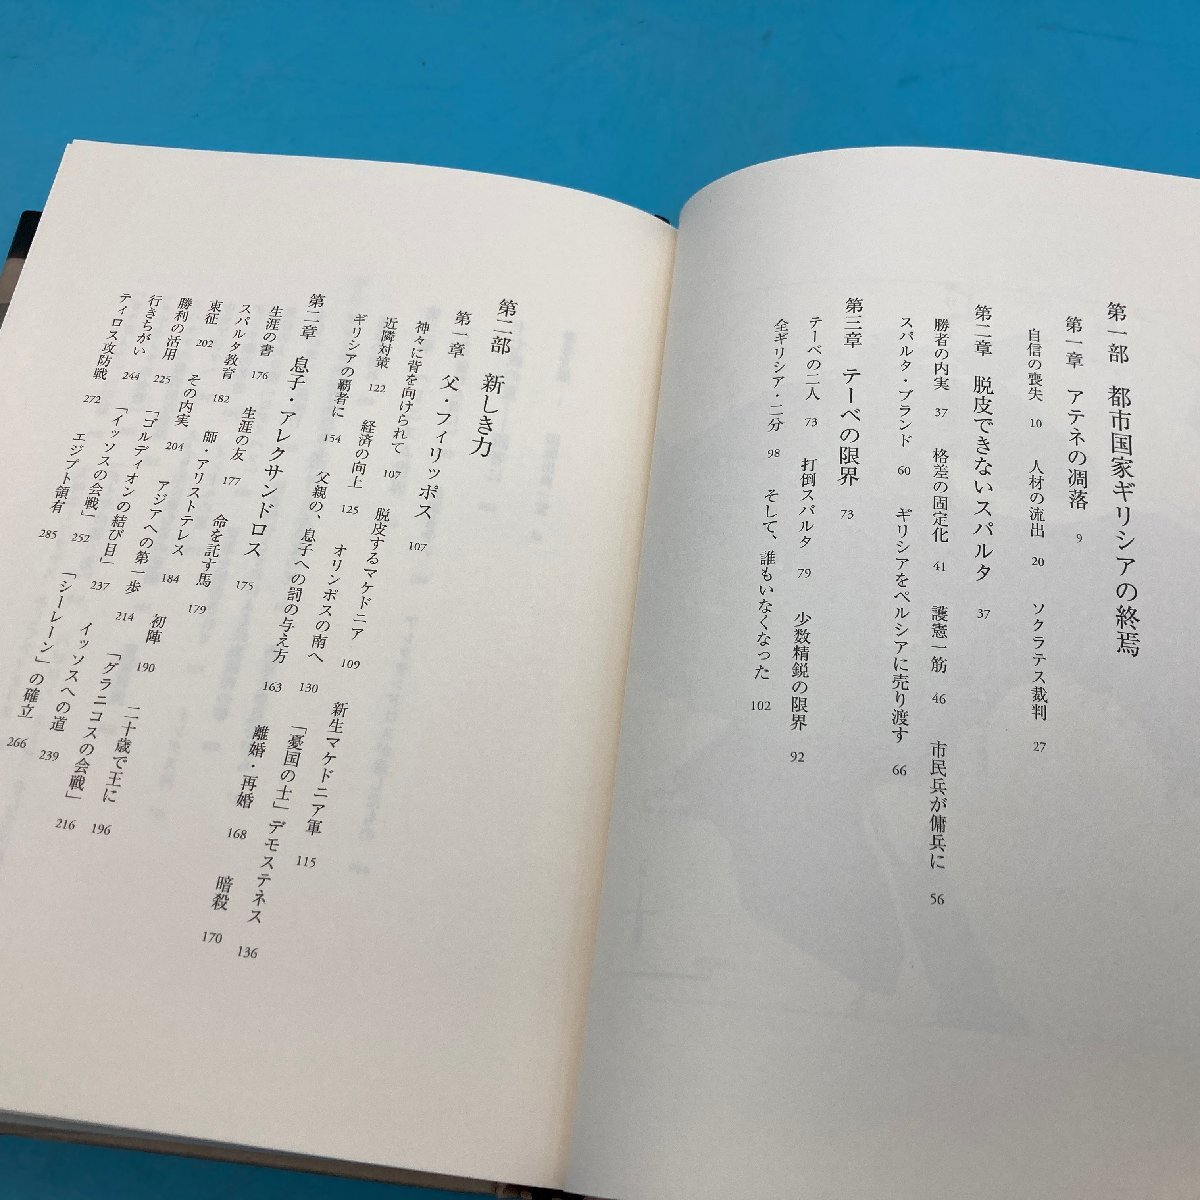 第一部 都市国家ギリシアの終焉
第一章 アテネの凋落 9
自信の喪失 10 人材の流出 20 ソクラテス裁判 27
第二章 脱皮できないスパルタ 37
勝者の内実 37 格差の固定化 41 護憲一筋 46 市民兵が傭兵に 56
スパルタ・ブランド 60 ギリシアをペルシアに売り渡す 66
第三章 テーベの限界 73
テーベの二人 73 打倒スパルタ 79 少数精鋭の限界 92
全ギリシア・二分 98 そして、誰もいなくなった 102
第二部 新しき力
第一章 父・フィリッポス 107
神々に背を向けられて 107 脱皮するマケドニア 109 新生マケドニア軍 115
近隣対策 122 経済の向上 125 オリンポスの南へ 130 「憂国の士」デモステネス 136
ギリシアの覇者に 154 父親の、息子への罰の与え方 163 離婚・再婚 168 暗殺 170
第二章 息子・アレクサンドロス 175
生涯の書 176 生涯の友 177 命を託す馬 179
スパルタ教育 182 師・アリストテレス 184 初陣 190 二十歳で王に 196
東征 202 その内実 204 アジアへの第一歩 214 「グラニコスの会戦」 216
勝利の活用 225 「ゴルディオンの結び目」 237 イッソスへの道 239
行きちがい 244 「イッソスの会戦」 252 「シーレーン」の確立 266
ティロス攻防戦 272 エジプト領有 285